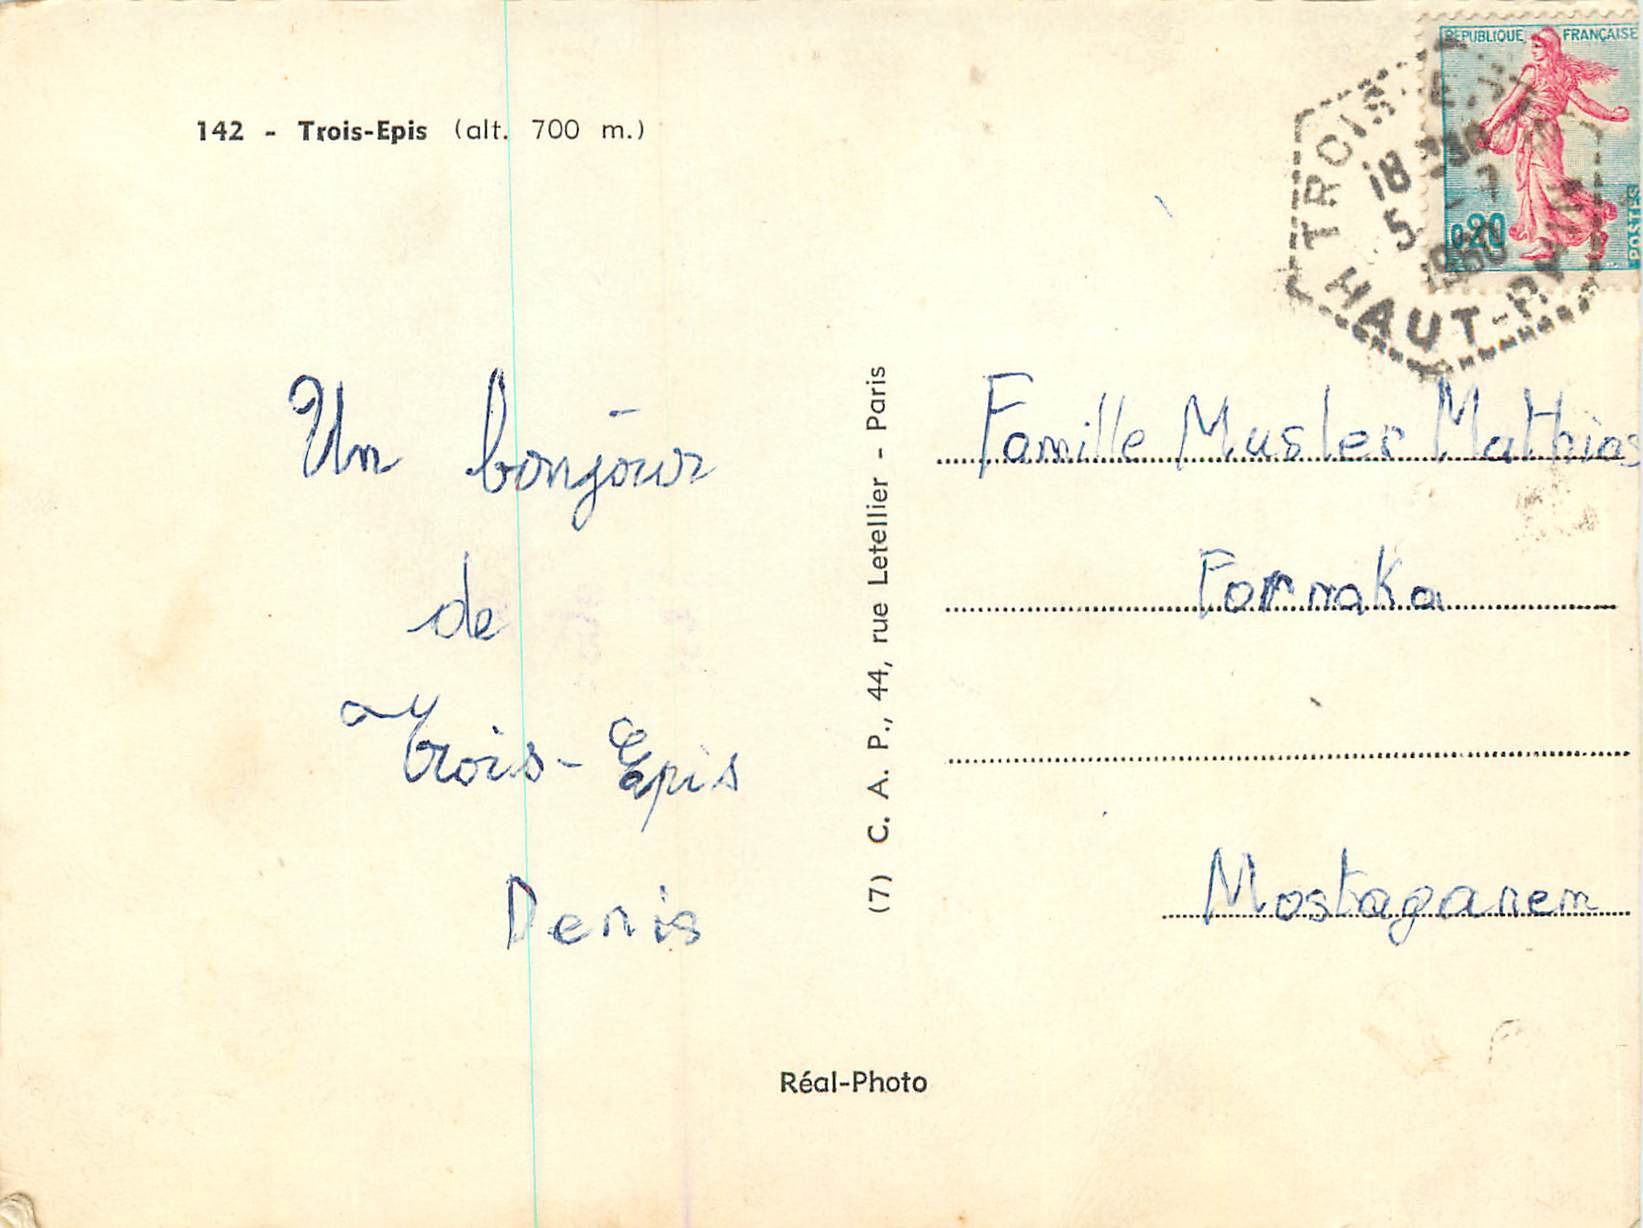 142 - Trois-Epis (alt. 700 m.)
RÉPUBLIQUE FRANÇAISE
0,20
POSTES
TROIS-EPIS
18 H30
5 - 7
1960
HAUT-RHIN
Un bonjour
de
Trois-Epis
Denis
(7) C. A. P., 44, rue Letellier - Paris
Famille Musler Mathias
Fornaka
Mostaganem
Réal-Photo